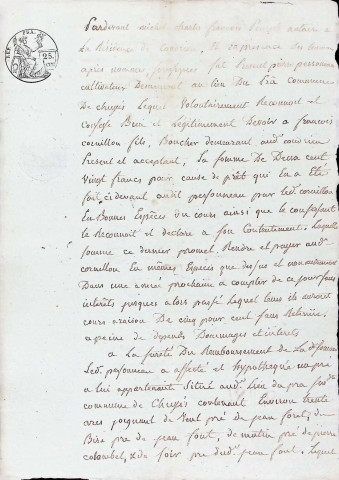 Pardevant
La résidence de
après nommés soussignés fut Présent pierre personneau
cultivateur Demeurant au lieu Du Prâ commune
De chupés Lequel Volontairement Reconnoit et
Confesse Bien et Légitimement Devoir a francois
cornillon fils, Boucher demeurant aud.
Présent et acceptant, La somme De Deux cent
Vingt francs pour cause de prêt qui En a Eté
fait cidevant audit personneau par led. cornillon
En Bonnes Espèces du cours ainsi que le confessant
le Reconnoit et declare a son Contentement. Laquelle
somme ce dernier promet Rendre et payer aud.
cornillon En mêmes Espèces que dessus et non autrement
Dans une année prochaine à compter de ce jour sans
interets jusques alors passé Lequel tems ils auront
cours araison De cinq pour cent sans Retenue.
apeine de depends Dommages et interets
a La sureté Du Remboursement de La d. somme
Led. personneau a affecté et hypothéqué un pré
a lui appartenant Situé aud. Lieu du pra susd.
commune de Chupés contenant Environ trente
ares joignant de Vent pré de peau font, de
Bise pré de peau font, de matin pré de pierre
colombet, & de soir pré dud. peau font. Lequel